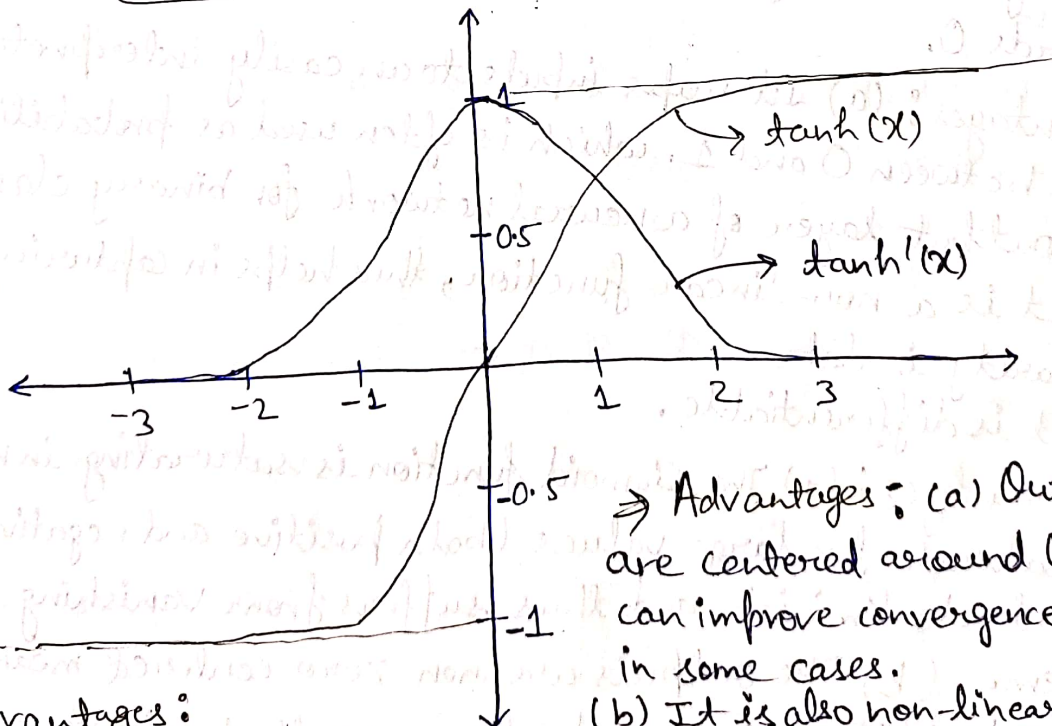 1
tanh(x)
0.5
tanh'(x)
-3 -2 -1 1 2 3
-0.5
⇒ Advantages : (a)
are centered around
-1 can improve convergence
in some cases.
(b) It is also non-linear